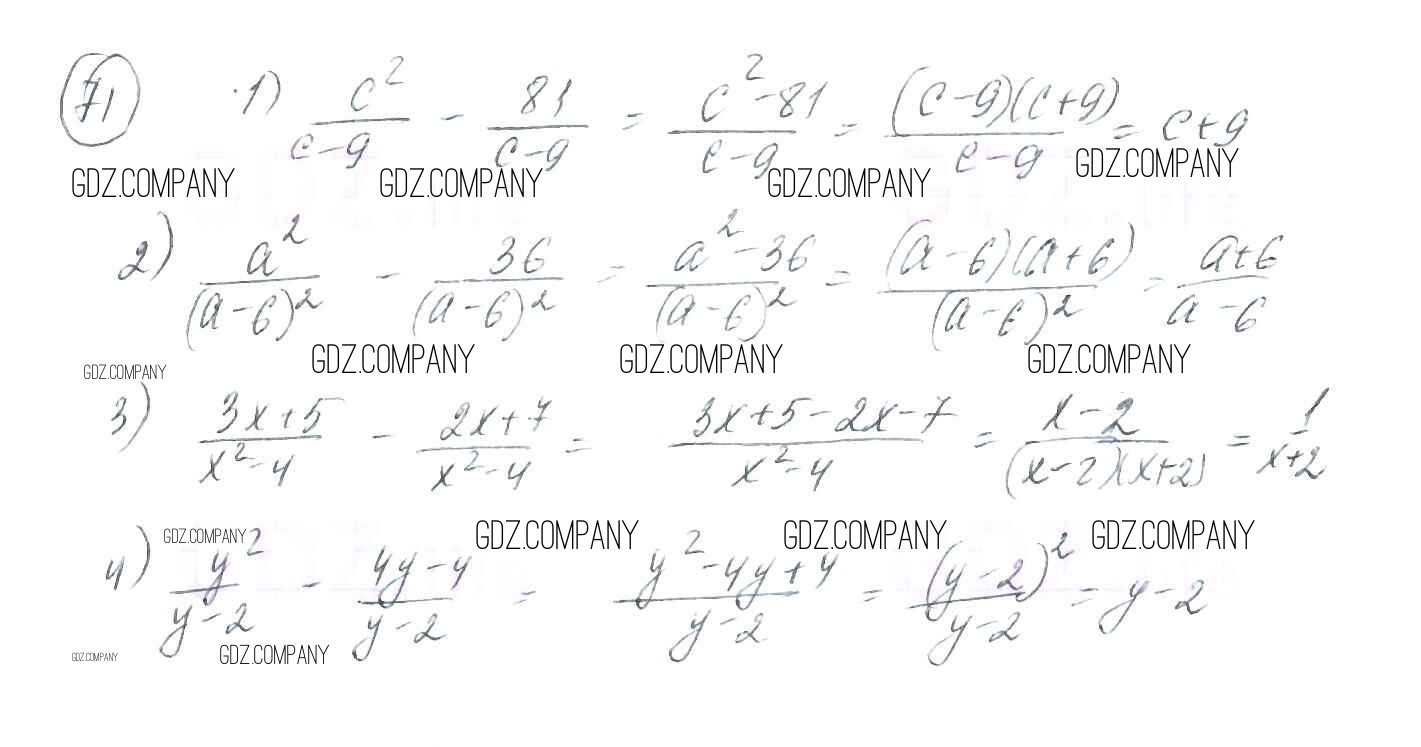 71 1) c²/(c-9) - 81/(c-9) = (c²-81)/(c-9) = (c-9)(c+9)/(c-9) = c+9
GDZ.COMPANY GDZ.COMPANY GDZ.COMPANY GDZ.COMPANY
2) a²/(a-6)² - 36/(a-6)² = (a²-36)/(a-6)² = (a-6)(a+6)/(a-6)² = (a+6)/(a-6)
GDZ.COMPANY GDZ.COMPANY GDZ.COMPANY GDZ.COMPANY
3) (3x+5)/(x²-4) - (2x+7)/(x²-4) = (3x+5-2x-7)/(x²-4) = (x-2)/((x-2)(x+2)) = 1/(x+2)
GDZ.COMPANY GDZ.COMPANY GDZ.COMPANY GDZ.COMPANY
4) y²/(y-2) - (4y-4)/(y-2) = (y²-4y+4)/(y-2) = (y-2)²/(y-2) = y-2
GDZ.COMPANY GDZ.COMPANY